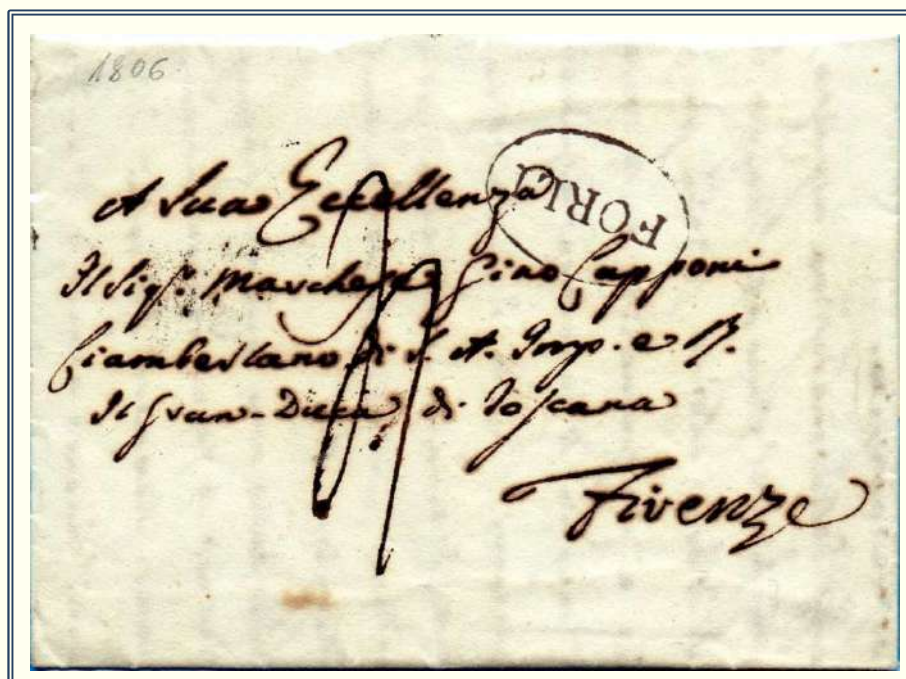 1806
FORLI
A Sua Eccellenza
Il Sig.r Marchese Gino Capponi
Ciambellano di S. A. Imp. e R.
Il Gran-Duca di Toscana
Firenze